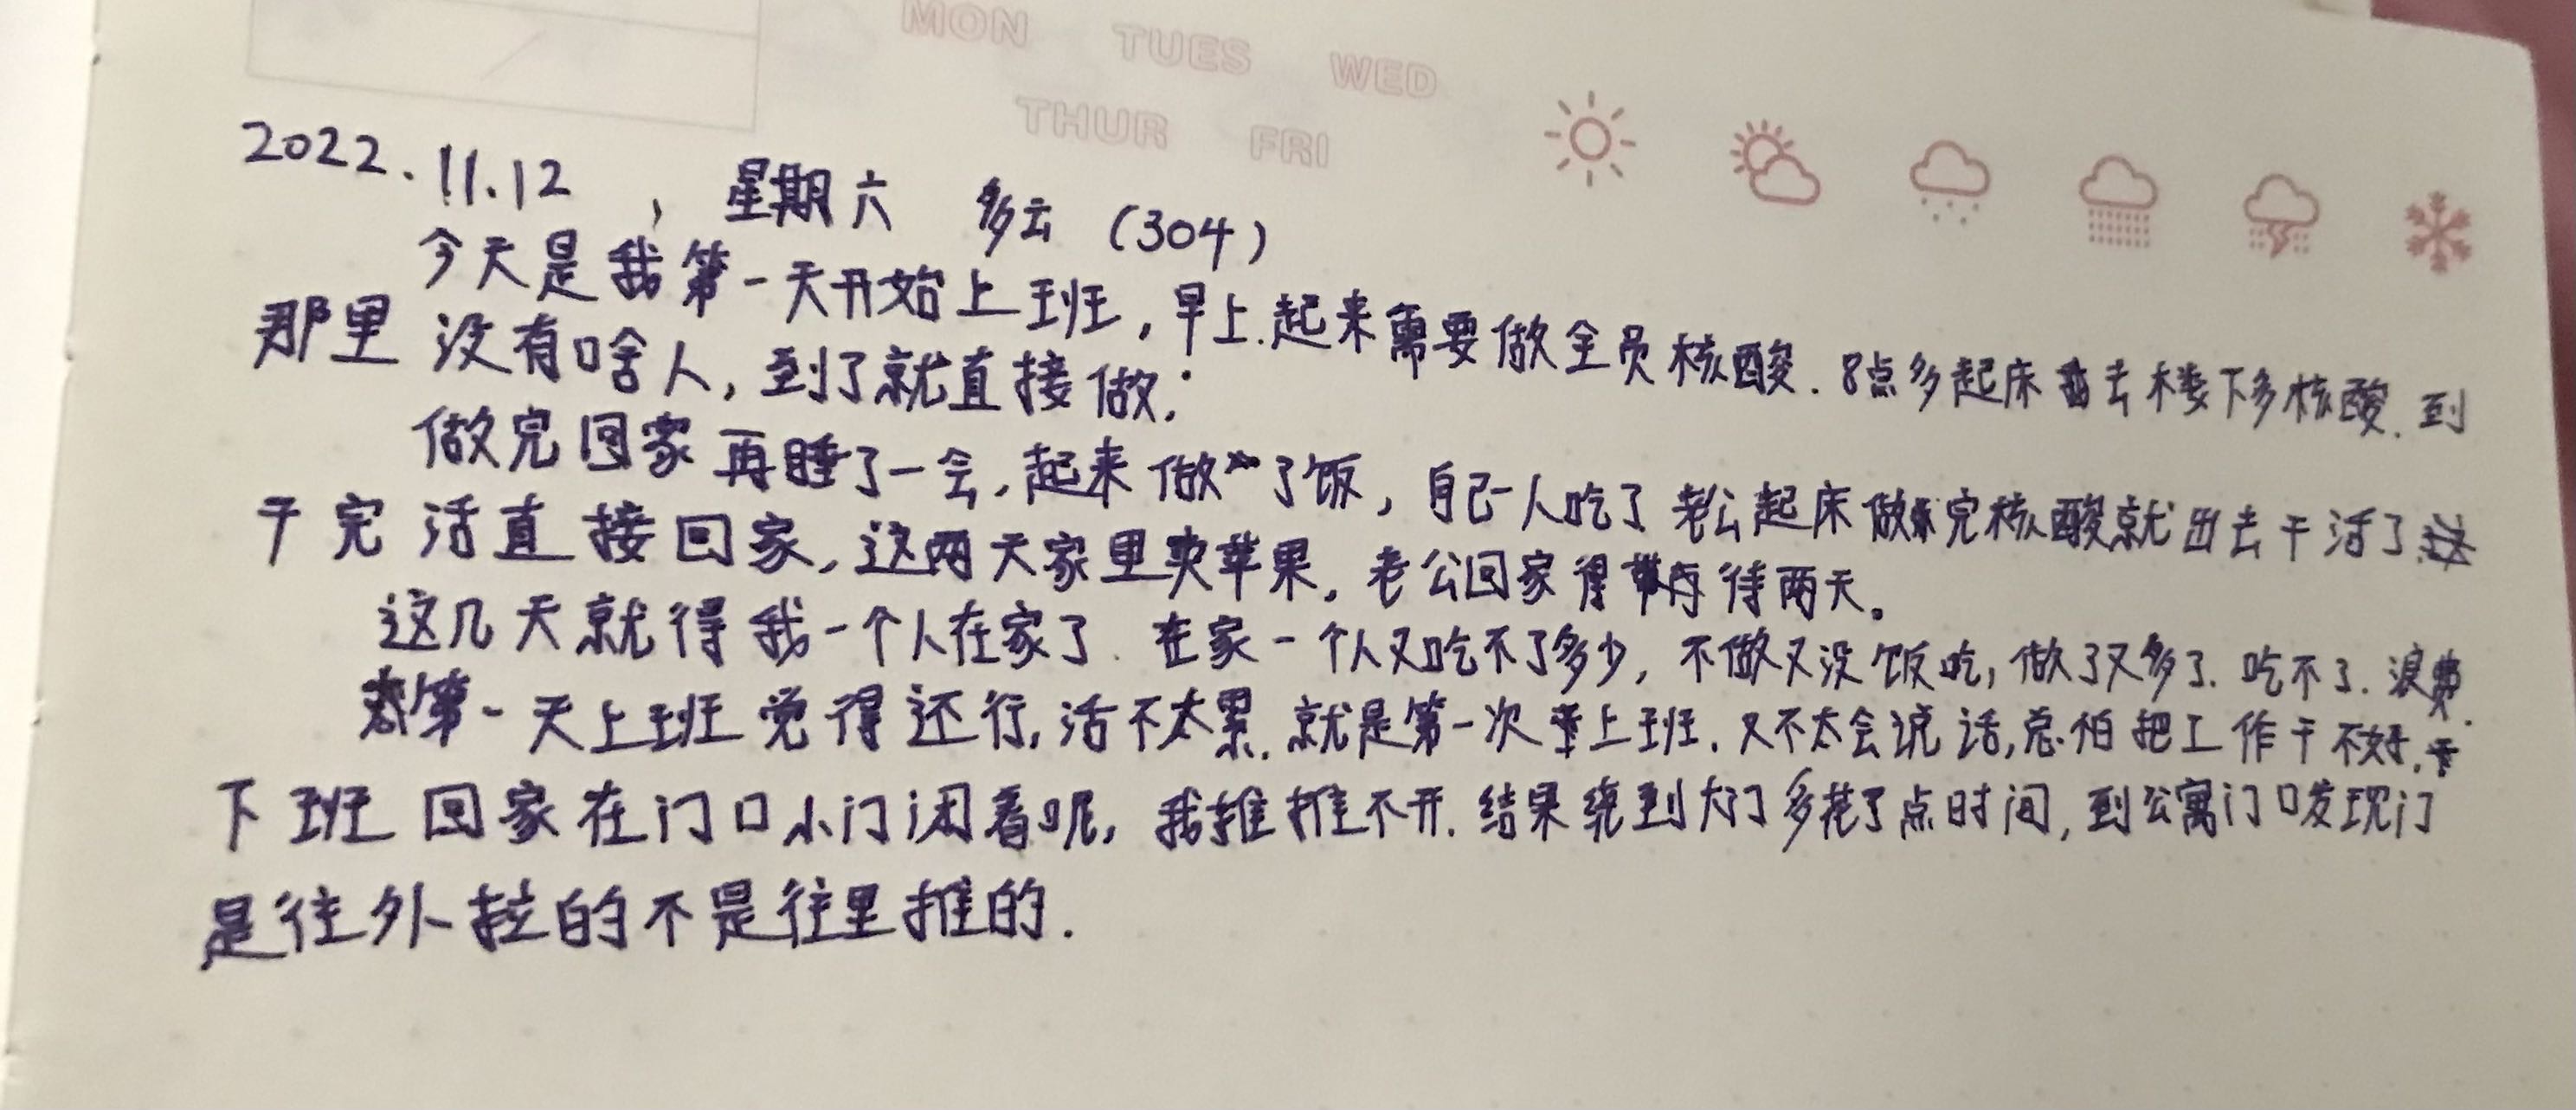 MON TUES WED
THUR FRI
2022.11.12 , 星期六 多云 (304)
今天是我第一天开始上班,早上.起来需要做全员核酸.8点多起床去楼下多核酸.到
那里没有啥人,到了就直接做.
做完回家再睡了一会,起来做了饭,自己一人吃了老公起床做完核酸就出去干活了
干完活直接回家,这两天家里卖苹果.老公回家得待两天。
这几天就得我一个人在家了.在家一个人又吃不了多少,不做又没饭吃,做了又多了.吃不了.浪费.
第一天上班觉得还行,活不太累.就是第一次上班.又不太会说话,总怕把工作干不好.
下班回家在门口小门闭着呢,我推推不开.结果绕到大门多花了点时间,到公寓门口发现门
是往外拉的不是往里推的.